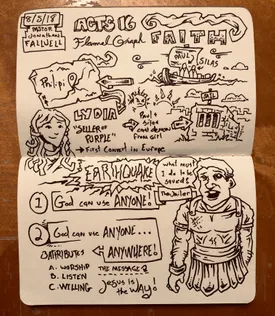 8/5/18
PASTOR
Jonathan
FALWELL
ACTS 16
Flannel Graph
FAITH
PAUL
SILAS
Philipi
LYDIA
"SELLER OF
PURPLE"
→ First Convert in Europe
Paul +
Silas
cast demon
from girl
EARTHQUAKE
What must
I do to be
saved?
The Jailer
1 God can use ANYONE!
2 God can use ANYONE...
ANYWHERE!
ATTRIBUTES
A. WORSHIP
B. LISTEN
C. WILLING
THE MESSAGE
Jesus is
the Way!